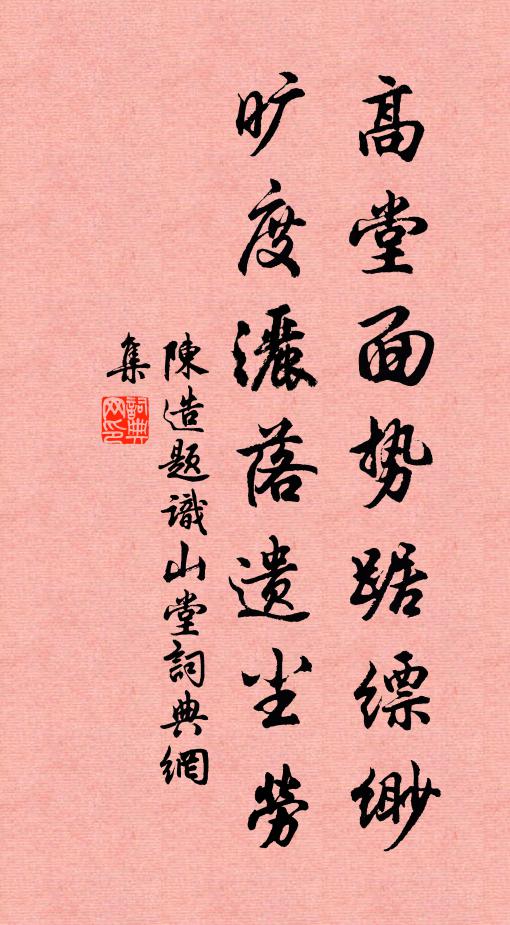 高堂面势踞缥缈
旷度灑落遗尘勞
陳造题識山堂詞典網
集
詞典网印